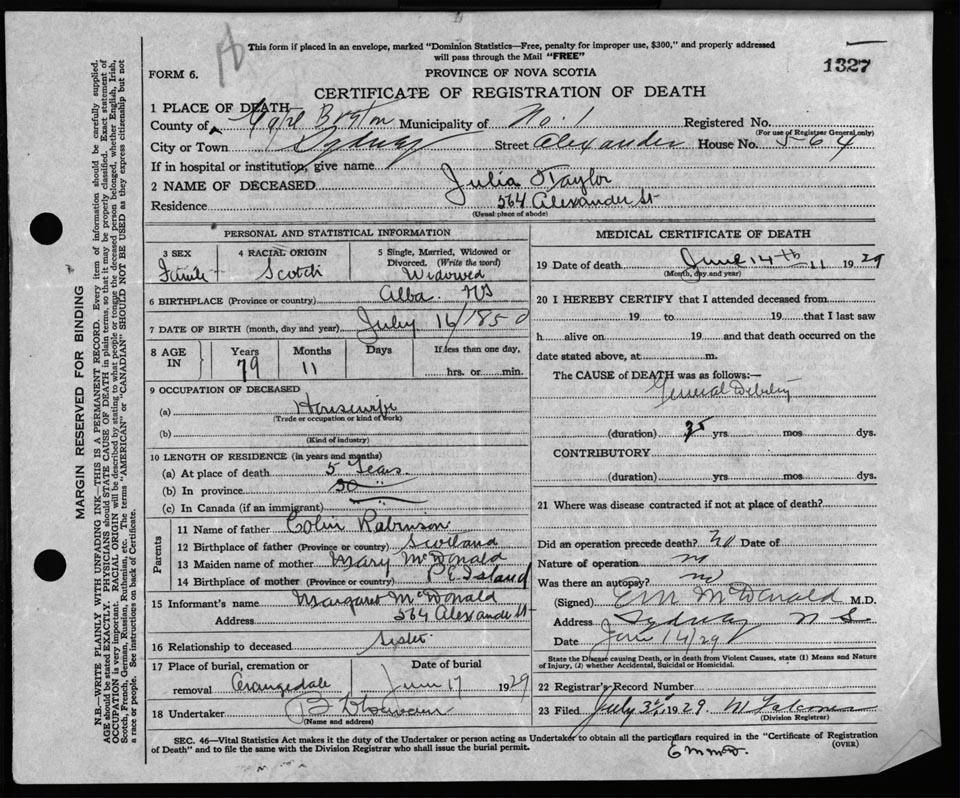 This form if placed in an envelope, marked "Dominion Statistics—Free, penalty for improper use, $300," and properly addressed
will pass through the Mail "FREE"
1327
FORM 6.
PROVINCE OF NOVA SCOTIA
CERTIFICATE OF REGISTRATION OF DEATH
1 PLACE OF DEATH
County of Cape Breton Municipality of No. 1 Registered No.
(For use of Registrar General only)
City or Town Sydney Street Alexander House No. 564
If in hospital or institution, give name
2 NAME OF DECEASED Julia Taylor
Residence 564 Alexander St
(Usual place of abode)
PERSONAL AND STATISTICAL INFORMATION
3 SEX 4 RACIAL ORIGIN 5 Single, Married, Widowed or Divorced. (Write the word)
Female Scotch Widowed
6 BIRTHPLACE (Province or country) Alba. NS
7 DATE OF BIRTH (month, day and year) July 16/1850
8 AGE IN Years Months Days If less than one day,
79 11 hrs. or min.
9 OCCUPATION OF DECEASED
(a) Housewife
(Trade or occupation or kind of work)
(b)
(Kind of industry)
10 LENGTH OF RESIDENCE (in years and months)
(a) At place of death 5 Years
(b) In province 50 "
(c) In Canada (if an immigrant)
Parents
11 Name of father Colin Robinson
12 Birthplace of father (Province or country) Scotland
13 Maiden name of mother Mary McDonald
14 Birthplace of mother (Province or country) P.E. Island
15 Informant's name Margaret McDonald
Address 564 Alexander St
16 Relationship to deceased Sister
17 Place of burial, cremation or removal Orangedale
Date of burial June 17 1929
18 Undertaker
(Name and address)
MEDICAL CERTIFICATE OF DEATH
19 Date of death June 14th 11 1929
(Month, day and year)
20 I HEREBY CERTIFY that I attended deceased from
19 to 19 that I last saw
h alive on 19 and that death occurred on the
date stated above, at m.
The CAUSE of DEATH was as follows:—
General Debility
(duration) yrs mos dys.
CONTRIBUTORY
(duration) yrs mos dys.
21 Where was disease contracted if not at place of death?
Did an operation precede death? No Date of
Nature of operation no
Was there an autopsy? no
(Signed) E M McDonald M.D.
Address Sydney N S.
Date June 14/29
State the Disease causing Death, or in death from Violent Causes, state (1) Means and Nature
of Injury, (2) whether Accidental, Suicidal or Homicidal.
22 Registrar's Record Number
23 Filed July 3rd 1929 M Falconer
(Division Registrar)
SEC. 46—Vital Statistics Act makes it the duty of the Undertaker or person acting as Undertaker to obtain all the particulars required in the "Certificate of Registration
of Death" and to file the same with the Division Registrar who shall issue the burial permit.
(OVER)
MARGIN RESERVED FOR BINDING
N.B.—WRITE PLAINLY WITH UNFADING INK—THIS IS A PERMANENT RECORD. Every item of information should be carefully supplied.
AGE should be stated EXACTLY. PHYSICIANS should STATE CAUSE OF DEATH in plain terms, so that it may be properly classified. Exact statement of
OCCUPATION is very important. RACIAL ORIGIN will be described by stating to what people or tongue the deceased person belonged, whether English, Irish,
Scotch, French, German, Russian, Ruthenian, etc. The terms "AMERICAN" or "CANADIAN" SHOULD NOT BE USED as they express citizenship but not
a race or people. See instructions on back of Certificate.